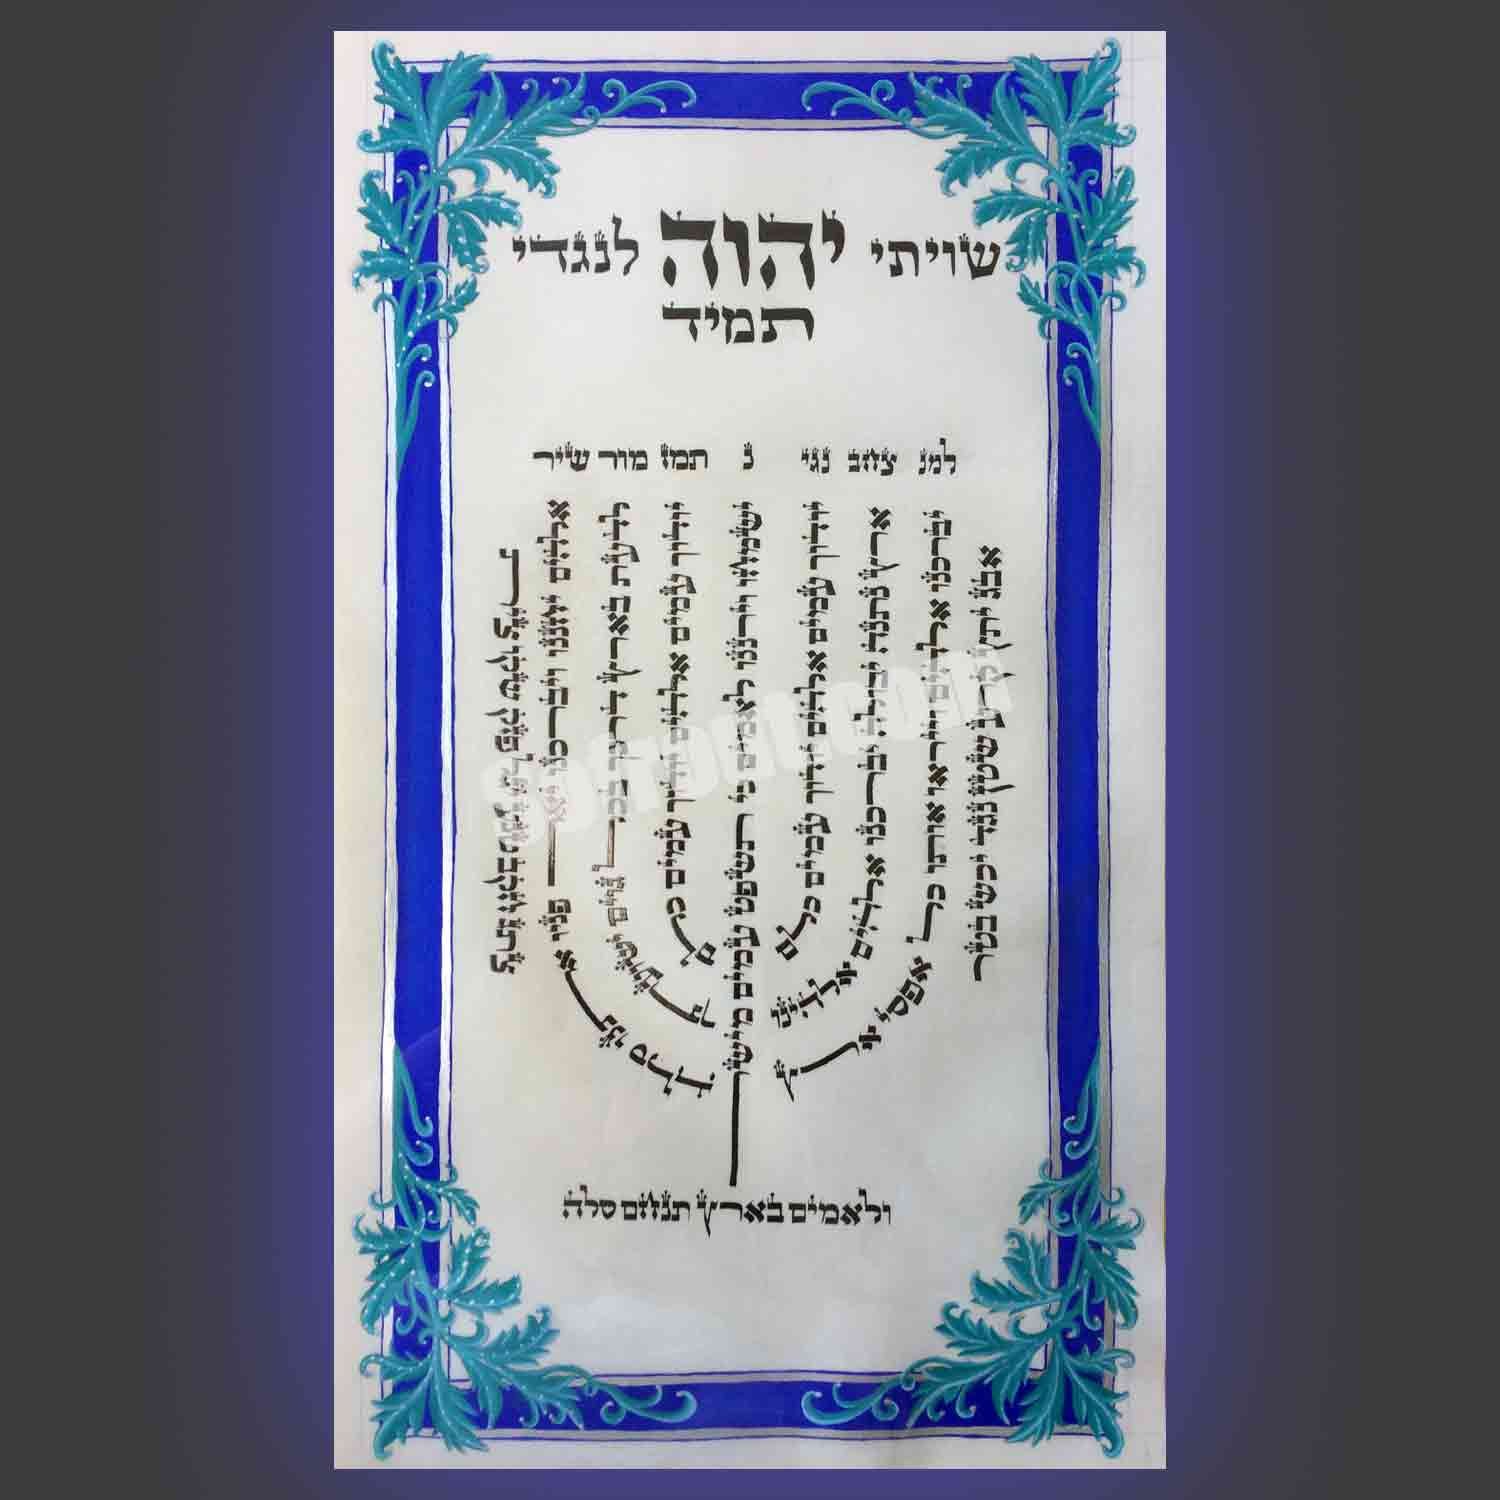 שויתי יהוה לנגדי
תמיד
למנ צחב נגי נ תמז מור שיר
אבג יתץ קרע שטן נגד יכש בטר
יברכנו אלהים וייראו אותו כל אפסי ארץ
ארץ נתנה יבולה יברכנו אלהים אלהינו
יודוך עמים אלהים יודוך עמים כלם
ישמחו וירננו לאמים כי תשפט עמים מישר
יודוך עמים אלהים יודוך עמים כלם
לדעת בארץ דרכך בכל גוים ישועתך
אלהים יחננו ויברכנו יאר פניו אתנו סלה
צתג חקב טנע יגל פזק שקו צית
ולאמים בארץ תנחם סלה